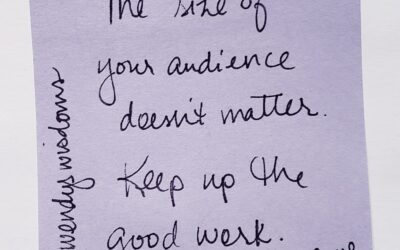 The size of
your audience
doesn't matter.
Keep up the
good work.
wendyswisdoms